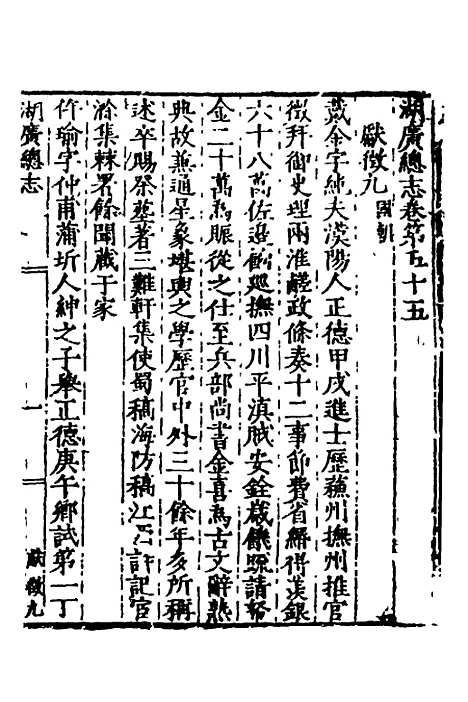 湖廣總志卷第五十五
獻徵九 國朝
戴金字純夫漢陽人正德甲戌進士歷蘇州撫州推官
徵拜御史理兩淮鹺政條奏十二事節費省緡得羨銀
六十八萬佐邊餉廵撫四川平滇賊安銓歲饑疏請帑
金二十萬爲賑從之仕至兵部尚書金喜爲古文辭熟
典故兼通星象堪輿之學歷官中外三十餘年多所稱
述卒賜祭塟著三難軒集使蜀稿海防稿江 詐記官
滁集棘署餘聞藏于家
仵瑜字仲甫蒲圻人紳之子舉正德庚午鄉試第一丁
湖廣總志
獻徵九
一